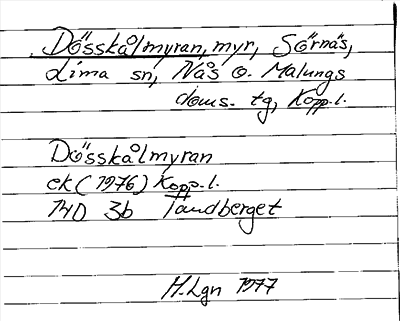 Dösskålmyran, myr, Sörnäs,
Lima sn, Nås o. Malungs
doms. tg, Kopp.l.
Dösskålmyran
ek (1976) Kopp.l.
14D 3b Tandberget
H. Lgn 1977